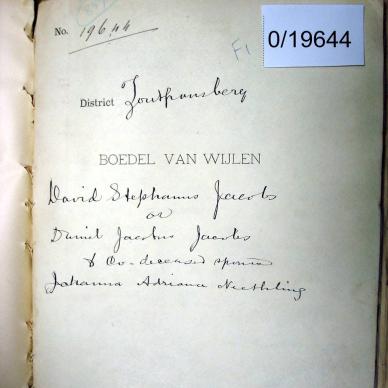 No. 19644
F1
0/19644
District Zoutpansberg
BOEDEL VAN WIJLEN
David Stephanus Jacobs
or
Daniel Jacobus Jacobs
& Co-deceased spouse
Johanna Adriana Neethling